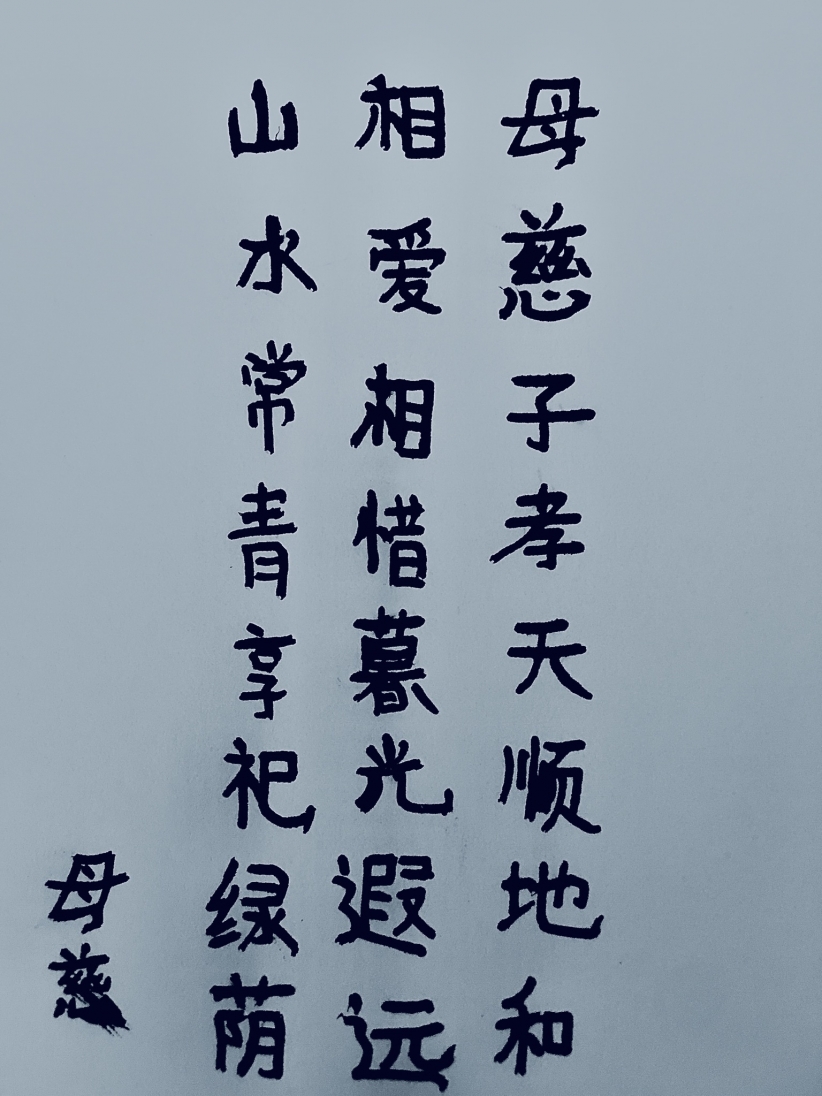 母慈子孝天顺地和
相爱相惜暮光遐远
山水常青享祀绿荫
母慈